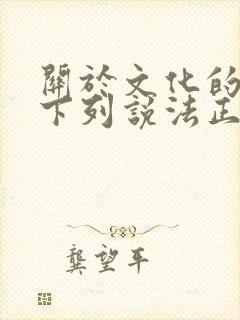 關於文化的
下列說法正
龔望平